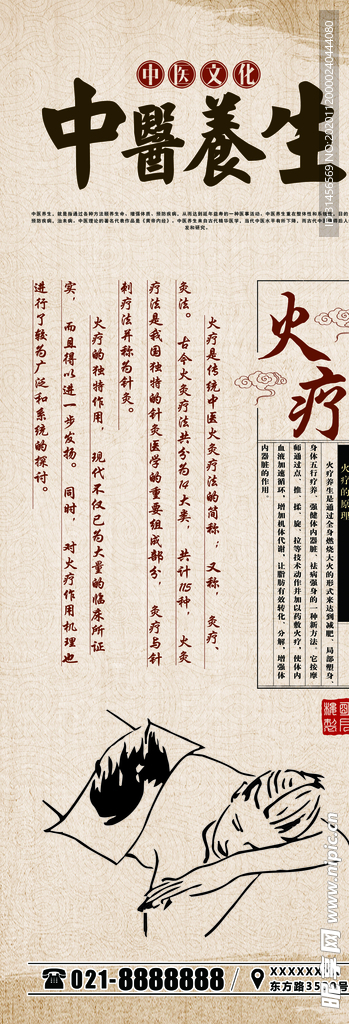 中医文化
中醫養生
中医养生，就是指通过各种方法颐养生命、增强体质、预防疾病，从而达到延年益寿的一种医事活动。中医养生重在整体性和系统性，目的
预防疾病，治未病。中医理论的著名代表作品是《黄帝内经》。中医养生来自古代精华医学，当代中医水平有所下降，而古代中
发和研究。
火疗
火疗的原理
火疗养生是通过全身燃烧大火的形式来达到减肥、局部塑身、
身体五行疗养、强健体内器脏、祛病强身的一种新方法。它按摩
师通过点、推、揉、旋、拉等技术动作并加以药敷火疗，使体内
血液加速循环，增加机体代谢，让脂肪有效转化、分解，增强体
内器脏的作用
火疗是传统中医火灸疗法的简称；又称，灸疗、
灸法。古今火灸疗法共分为14大类，共计115种，火灸
疗法是我国独特的针灸医学的重要组成部分，灸疗与针
刺疗法并称为针灸。
火疗的独特作用，现代不仅已为大量的临床所证
实，而且得以进一步发扬。同时，对火疗作用机理也
进行了较为广泛和系统的探讨。
021-8888888
XXXXXXX
东方路3500号
昵图网 www.nipic.cn